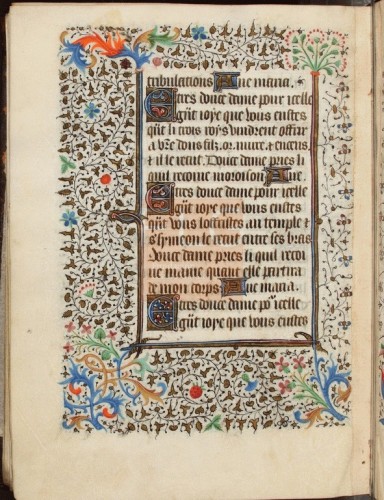 tribulations Aue maria.
Tres doulce dame pour icelle
grāt ioye que vous eustes
quāt li trois roys vindrent offrir
a vr̄e doulz filz. or. mirre. ⁊ encens.
⁊ il le recut. Doulce dame pries li
quil recoiue mon oroison Aue.
Tres doulce dame pour icelle
grāt ioye que vous eustes
quāt vous loffristes au temple ⁊
s' symeon le recut entre ses bras
doulce dame pries li quil recoi
ue mame quant elle partira
de mon corps Aue maria.
Tres doulce dame po' icelle
grāt ioye que vous eustes